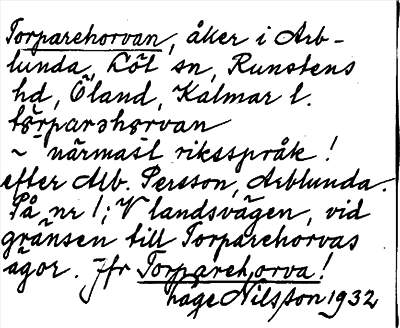 Torparehorvan, åker i Arb-
lunda, Löt sn, Runstens
hd, Öland, Kalmar l.
tɷrparəhɷrvan
~ närmast riksspråk!
efter Alb. Persson, Arblunda.
På nr 1; V landsvägen, vid
gränsen till Torparehorvas
ägor. Jfr Torparehorva!
håge Nilsson 1932